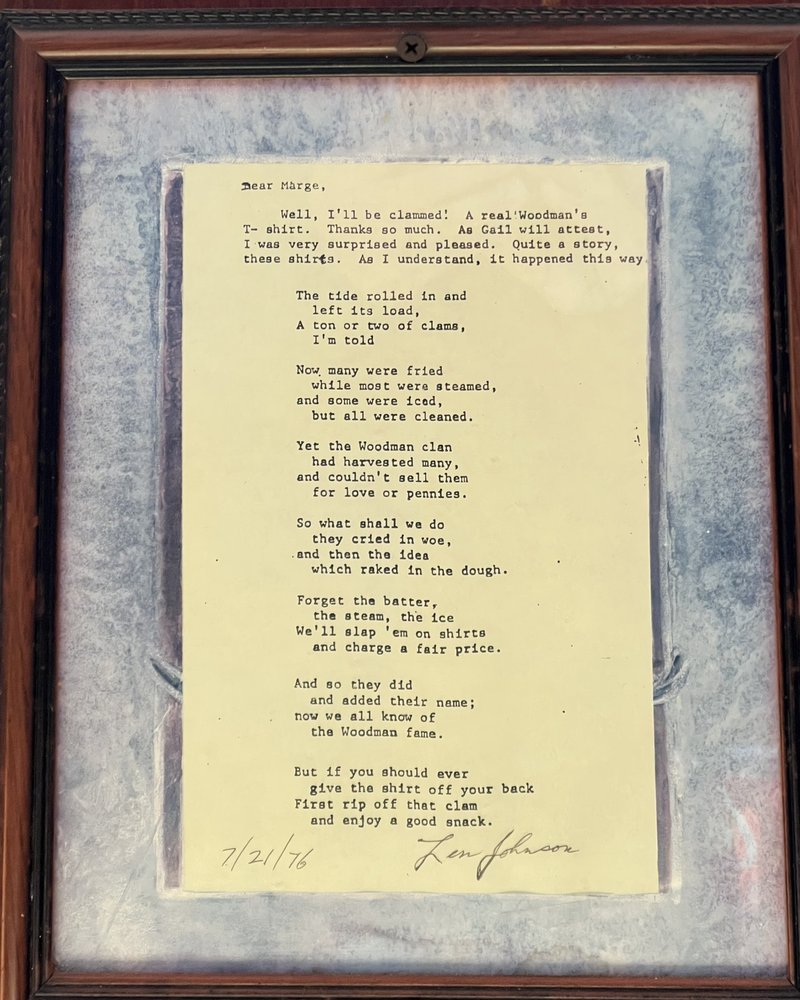 Dear Marge,
Well, I'll be clammed! A real Woodman's
T- shirt. Thanks so much. As Gail will attest,
I was very surprised and pleased. Quite a story,
these shirts. As I understand, it happened this way
The tide rolled in and
left its load,
A ton or two of clams,
I'm told
Now many were fried
while most were steamed,
and some were iced,
but all were cleaned.
Yet the Woodman clan
had harvested many,
and couldn't sell them
for love or pennies.
So what shall we do
they cried in woe,
and then the idea
which raked in the dough.
Forget the batter,
the steam, the ice
We'll slap 'em on shirts
and charge a fair price.
And so they did
and added their name;
now we all know of
the Woodman fame.
But if you should ever
give the shirt off your back
First rip off that clam
and enjoy a good snack.
7/21/76 Len Johnson